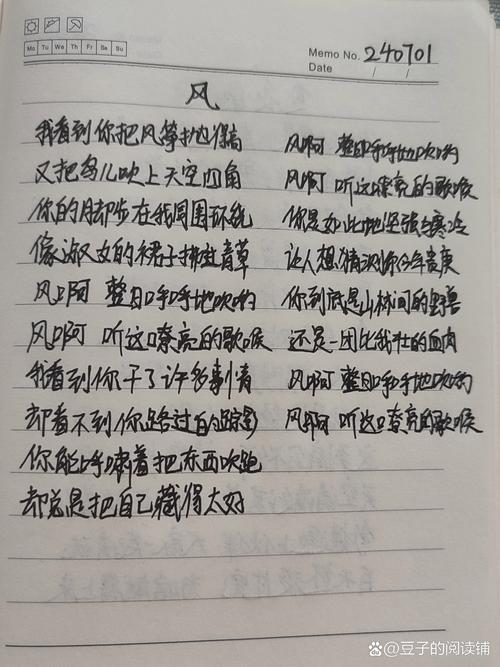 Mo Tu We Th Fr Sa Su
Memo No. 240701
Date / /
风
我看到你把风筝抛也得高
又把鸟儿吹上天空四角
你的月却步在我周围环绕
像淑女的裙子拂过青草
风啊 整日呼呼地吹哟
风啊 听这嘹亮的歌喉
我看到你干了许多事情
却看不到你路过的踪影
你能呼啸着把东西吹跑
却总是把自己藏得太好
风啊 整日呼呼地吹哟
风啊 听这嘹亮的歌喉
你是如此地坚强与寒冷
让人想猜测你今年贵庚
你到底是山林间的野兽
还是一团比我壮的血肉
风啊 整日呼呼地吹哟
风啊 听这嘹亮的歌喉
@豆子的阅读铺